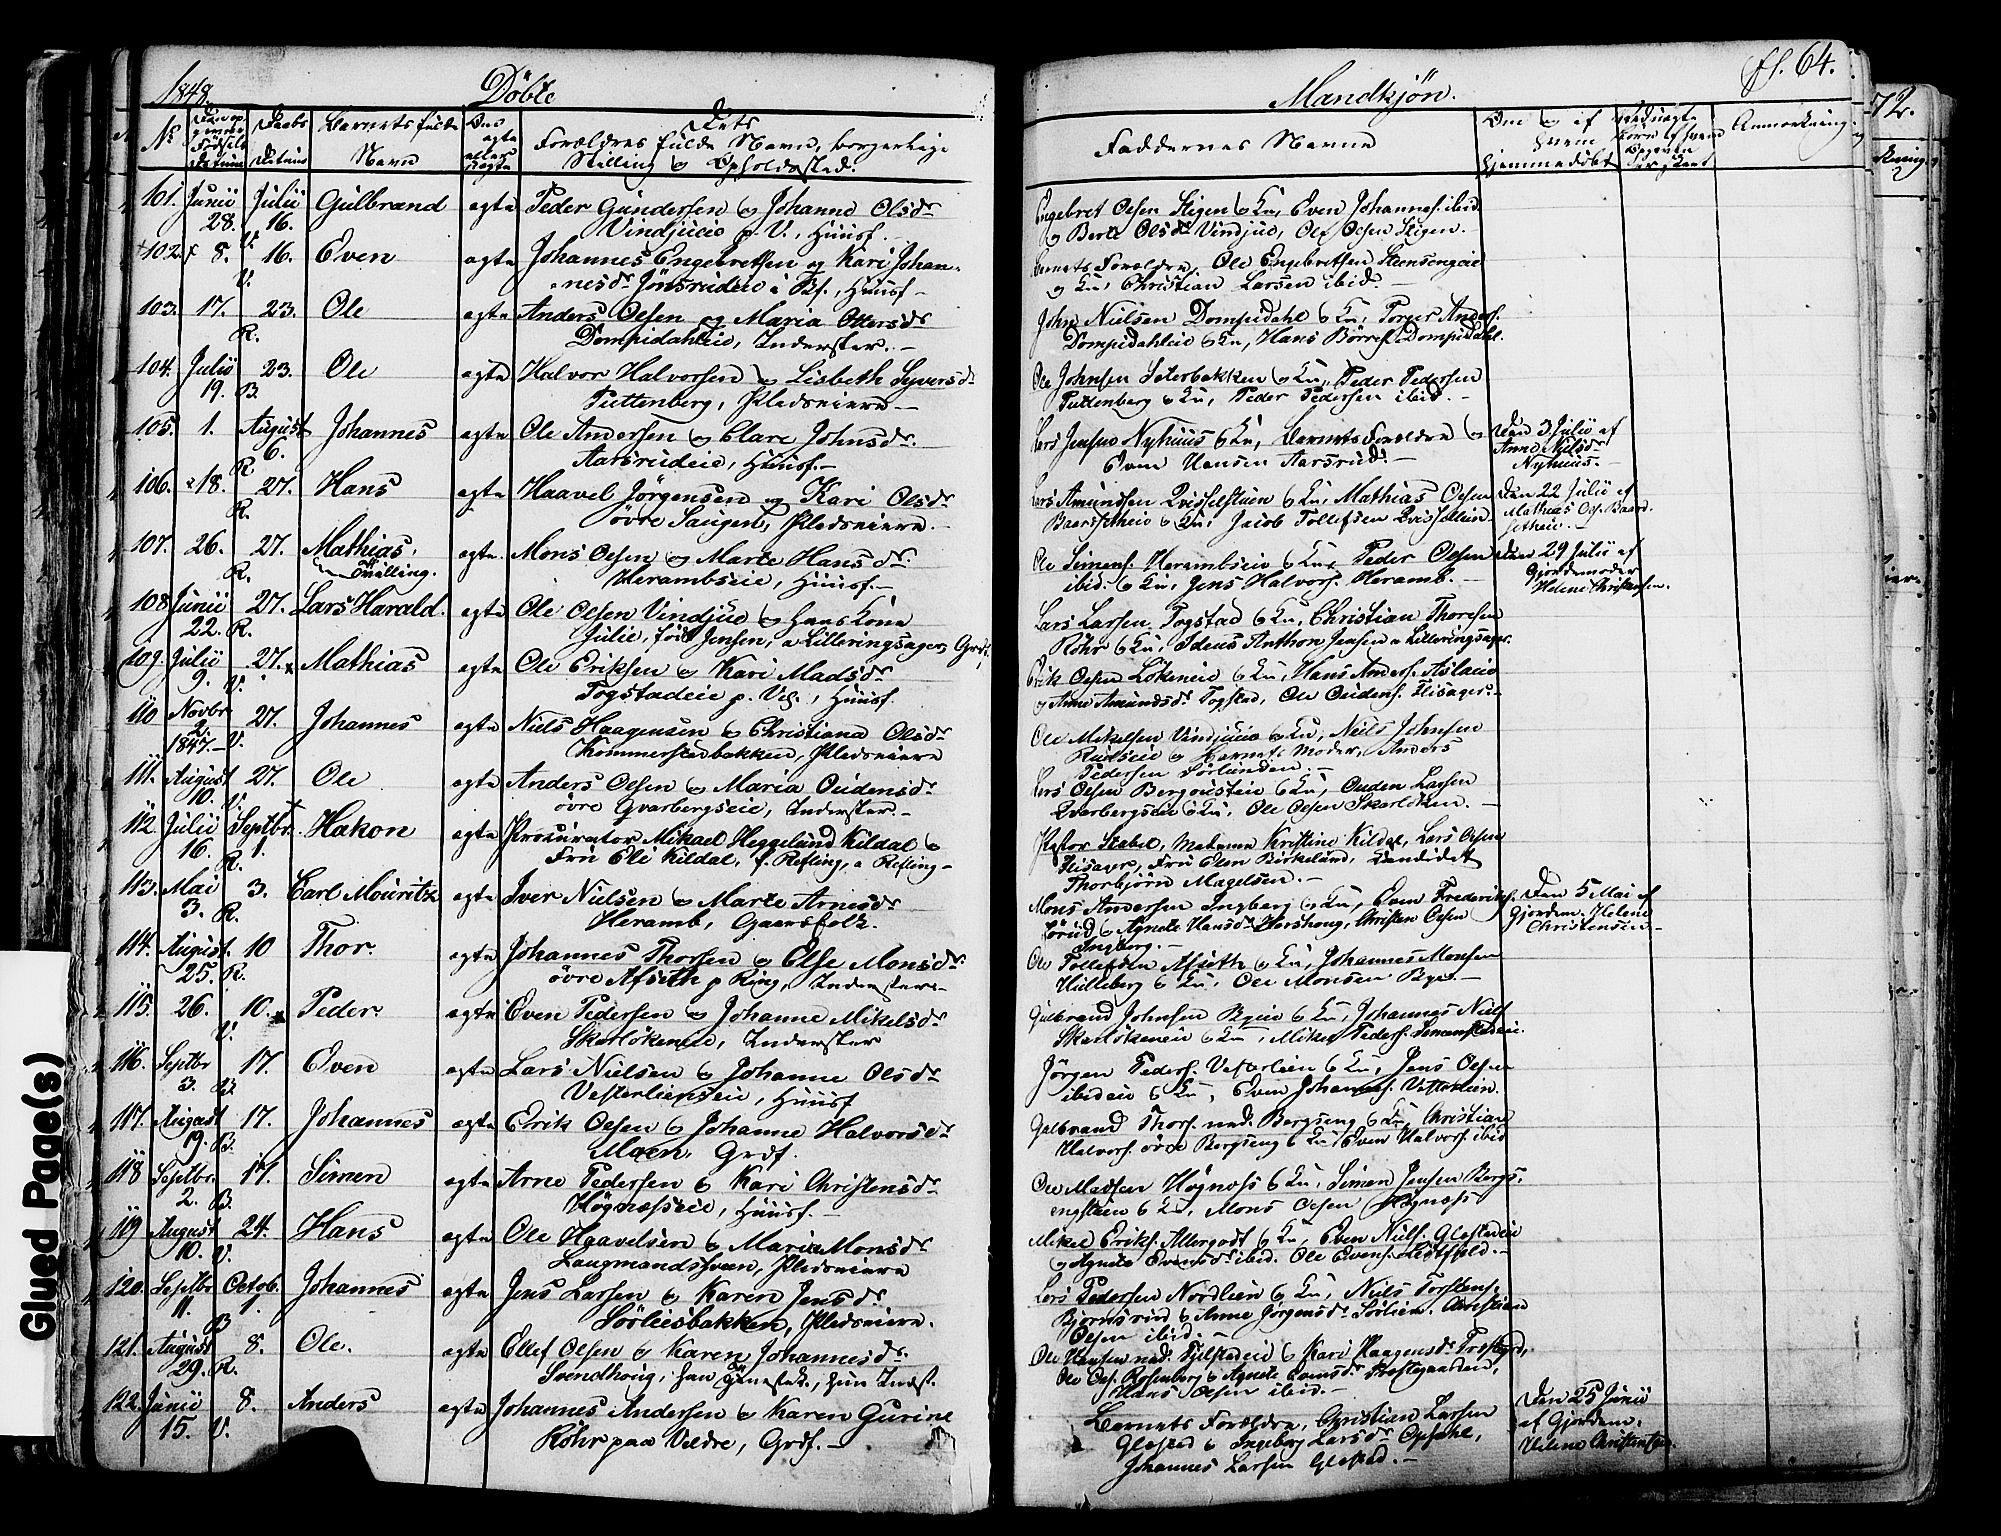 1848.
Döbte
Mandkjön.
fl. 64.
72.
No
Datum
Daabs Datum
Barnets fulde Navn
Om ægte eller uægte
Dets Forældres fulde Navne, borgerlige Stilling og Opholdssted.
Faddernes Navne
Om og af hvem hjemmedöbt
Anmærkning
101. Junii 28. V. Julii 16. Gulbrand ægte Peder Gundersen og Johanne Olsdr
Vindjueie p. V., Huusf. -
Engebret Olsen Stigen & Ku, Even Johannes. ibid.
og Berte Olsdr Vindjue, Ole Olsen Stigen. -
102. 8. V. 16. Even ægte Johannes Engebretsen og Kari Johan-
nesdr Jönsrudeie i Bf., Huusf -
Barnets Forældre, Ole Engebretsen Steensengeie
og Ku, Christian Larsen ibid. -
103. 17. R. 23. Ole ægte Anders Olsen og Maria Ottersdr
Dompidahleie, Inderster. -
John Nielsen Dompidahl & Ku, Torger Anders.
Dompidahleie & Ku, Hans Börres. Dompidahl.
104. Julii 19. B. 23. Ole ægte Halvor Halvorsen og Lisbeth Syversdr
Puttenberg, Pladseiere -
Ole Johnsen Seterbakken & Ku, Peder Pedersen
Puttenberg & Ku, Peder Pedersen ibid. -
105. 1. R. August 6. Johannes ægte Ole Andersen og Clare Johnsdr.
Aarsrudeie, Huusf. -
Lars Jensen Nyhuus & Ku, Barnets Forældre og
Even Hansen Aarsrud. -
Den 3 Julii af
Anne Nilsdr
Nyhuus. -
106. 18. R. 27. Hans ægte Haavel Jörgensen og Kari Olsdr
övre Saugen, Pladseiere. -
Lars Amundsen Qvisselstuen & Ku, Mathias Olsen
Baarsetheie & Ku, Jacob Tollefsen
Den 22 Julii af
Mathias Ols. Baard-
setheie. -
107. 26. R. 27. Mathias. Tvilling. ægte Mons Olsen og Marte Hansdr.
Herambseie, Huusf. -
Ole Simens. Herambseie & Ku, Peder Olsen
ibid. & Ku, Jens Halvors. Heramb. -
Den 29 Julii af
Gjordemoder
Helene Christensen.
108. Junii 22. R. 27. Lars Harald. ægte Ole Olsen Vindjue og Hans Kone
Julie, föd Jensen, a Lilleringsager, Grdf.
Lars Larsen Togstad & Ku, Christian Thoresen
Röhr & Ku, Anthon Jensen a Lilleringsager.
109. Julii 9. V. 27. Mathias ægte Ole Eriksen og Kari Madsdr
Togstadeie p. V., Huusf.
Erik Olsen Lökeneie & Ku, Hans Anders.
og Anne Amundsdr Togstad, Ole Oudens. Flisager. -
110 Novbr 2. 1847. - V. 27. Johannes ægte Niels Haagensen og Christiana Olsdr
Kommerstadbakken, Pladseiere
Ole Mikelsen Vindjueie & Ku, Niels Johnsen
og Barnets Moder, Anders
Pedersen Sörlunden. -
111. August 10. V. 27. Ole ægte Anders Olsen og Maria Oudensdr
övre Qvarbergseie, Inderster. -
Lars Olsen & Ku, Ouden Larsen
Qvarbergseie & Ku, Ole Olsen Skarlöken. -
112. Julii 16. R. Septbr. 1. Hakon ægte Procurator Mikael Heggelund Kildal &
Frü Eli Kildal, f. Refling, a Refling -
Pastor Stabel, Madame Kristine Kildal, Lars Olsen
Flisager, Frü Elen Birkelund, Candidat
Thorbjörn Magelsen. -
113. Mai 3. R. 3. Carl Mouritz ægte Iver Nielsen og Marte Arnesdr
Heramb, Gaardfolk.
Mons Andersen Ingberg & Ku, Even Frederiks.
& Agnete Hansdr Horshoug, Christen Olsen
Ingberg. -
Den 5 Mai af
Gjordem. Helene
Christensen -
114. August. 25. R. 10 Thor. ægte Johannes Thorsen og Else Monsdr
övre Afseth p Ring, Inderstere -
Ole Tollefsen Afseth & Ku, Johannes Monsen
Hulleberg & Ku, Ole Monsen Bye. -
115. 26. V. 10. Peder ægte Even Pedersen og Johanne Mikelsdr
Skarlökeneie, Inderster
Gulbrand Johnsen Byeie & Ku, Johannes Niels.
Skarlökeneie & Ku, Mikel Peders. Simenstadeie.
116. Septbr 3. B. 17. Even ægte Lars Nielsen og Johanne Olsdr
Vesterlienseie, Huusf
Jörgen Peders. Vesterlien & Ku, Jens Olsen
ibideie & Ku, Even Johannes. Vesterlien.
117. August 19. B. 17. Johannes ægte Erik Olsen og Johanne Halvorsdr.
Moen, Grdf.
Gulbrand Thors. ned. Bergseng & Ku, Christian
Halvors. övre Bergseng & Ku, Even Halvors. ibid
118 Septbr. 2. B. 17. Simen ægte Arne Pedersen & Kari Christensdr
Högnæsseie, Huusf. -
Ole Madsen Högness & Ku, Simen Jensen Bergs-
engstuen & Ku, Mons Olsen Högness
119 August 10. V. 24. Hans ægte Ole Haavelsen & Maria Monsdr
Laugmandssveen, Pladseiere
Mikel Eriks. Allergodt & Ku, Even Niels. Glæstadeie
og Agnete Evensdr ibid. Ole Evens. Listfjeld. -
120. Septbr 11. B Octob. 1. Johannes ægte Jens Larsen & Karen Jensdr.
Sörliesbakken, Pladseiere.
Lars Pedersen Nordlien & Ku, Niels Torstens.
Björnsrud & Anne Jörgensdr Sörlien, Christian
Olsen ibid. -
121. August 29. R. 8. Ole. ægte Ellef Olsen & Karen Johannesdr.
Svendhoug, han Gaardsk., hun Indst.
Ole Hansen ned. & Kari Haagensdr
Ole Ols. Rosenberg & Agnete Evensdr Prestegaarden,
Hans Olsen ibid. -
122. Junii 15. V. 8. Anders ægte Johannes Andersen & Karen Gurine
Röhr paa Veldre, Grdf. -
Barnets Forældre, Christian Larsen
Glæstad & Ingeborg Larsdr Opsahl,
Johannes Larsen Glæstad. -
Den 25 Junii
af Gjordem.
Helene Christensen.
Glued Page(s)